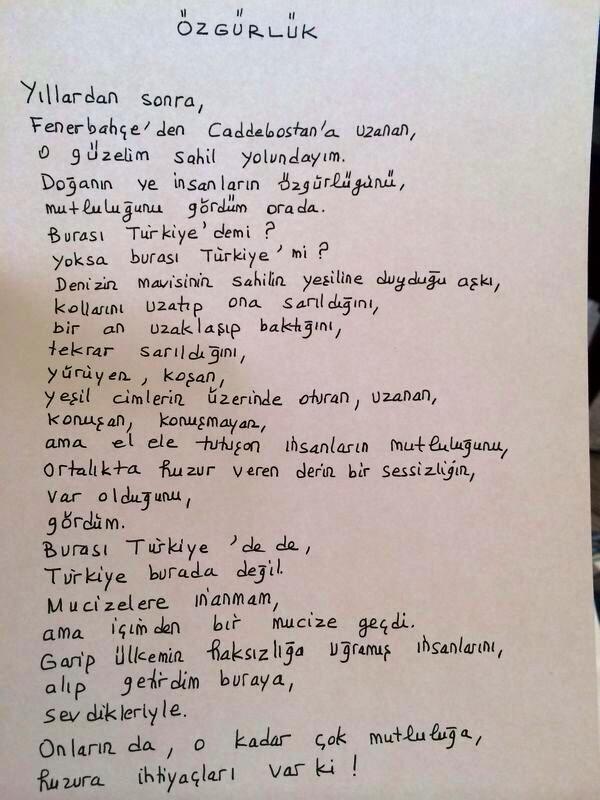 ÖZGÜRLÜK
Yıllardan sonra,
Fenerbahçe'den Caddebostan'a uzanan,
o güzelim sahil yolundayım.
Doğanın ve insanların özgürlüğünü,
mutluluğunu gördüm orada.
Burası Türkiye'demi ?
yoksa burası Türkiye'mi ?
Denizin mavisinin sahilin yeşiline duyduğu aşkı,
kollarını uzatıp ona sarıldığını,
bir an uzaklaşıp baktığını,
tekrar sarıldığını,
yürüyen, koşan,
yeşil cimlerin üzerinde oturan, uzanan,
konuşan, konuşmayan,
ama el ele tutuşan insanların mutluluğunu,
ortalıkta huzur veren derin bir sessizliğin,
var olduğunu,
gördüm.
Burası Türkiye 'de de,
Türkiye burada değil.
Mucizelere inanmam,
ama içimden bir mucize geçdi.
Garip ülkemin haksızlığa uğramış insanlarını,
alıp getirdim buraya,
sevdikleriyle.
Onların da, o kadar çok mutluluğa,
huzura ihtiyaçları var ki !